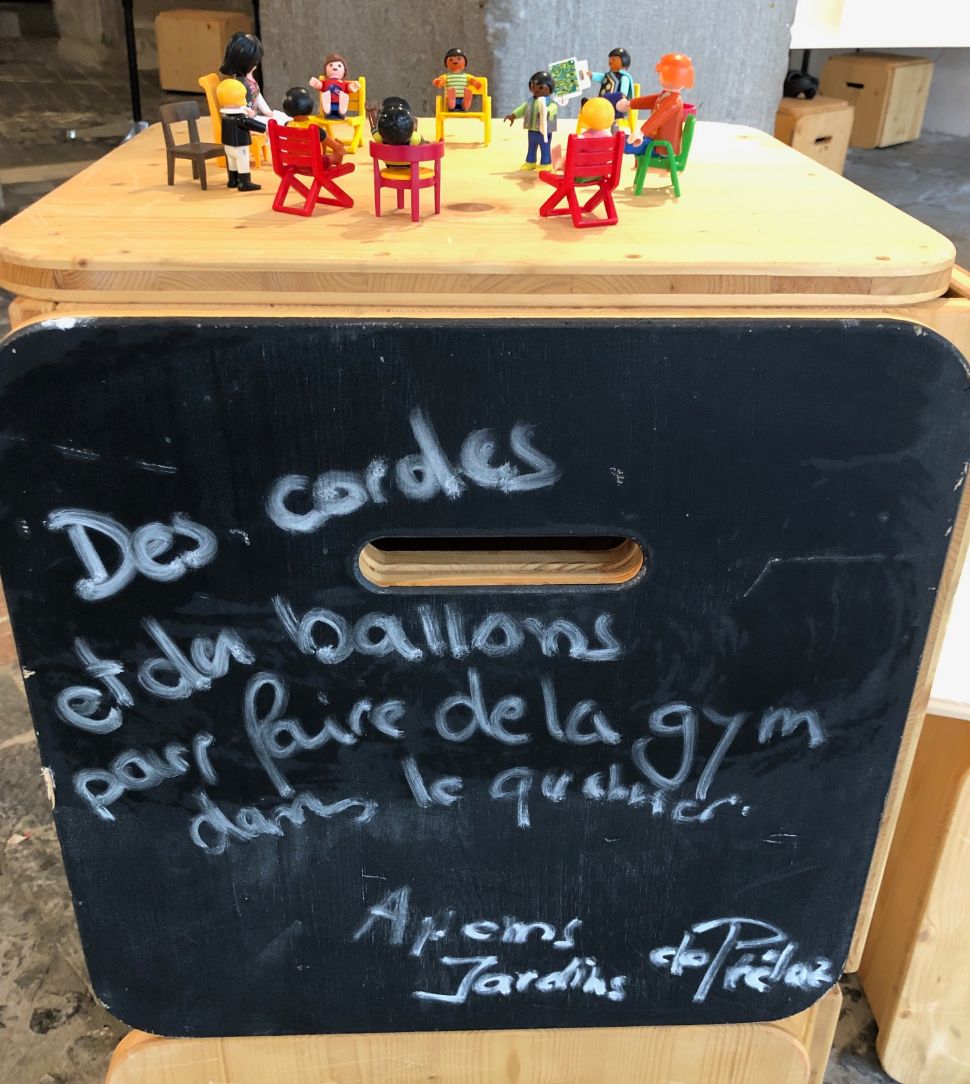 Des cordes
et des ballons
pour faire de la gym
dans le quartier.
de Prélaz
Jardins